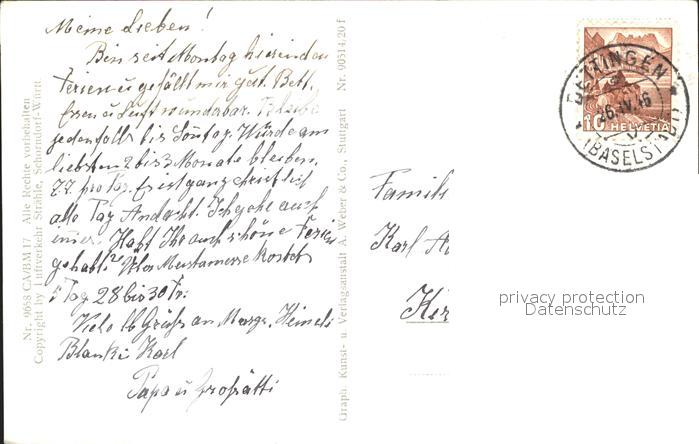 Meine Lieben!
Bin seit Montag hier in den
Ferien u gefällt mir gut. Bett,
Essen u Luft wunderbar. Bleibe
jedenfalls bis Sonntag. Würde am
liebsten 2 bis 3 Monate bleiben.
7.7. pro Tg. Es ist ganz christlich
alle Tag Andacht. Ich gehe auch
immer. Habt Ihr auch schöne Ferien
gehabt?
Tag 28 bis 30 Fr.
Viele lb Grüße an Margr. Heineli
Blanki Karl
Papa u Großätti
Nr. 9058 CA/BM 17 Alle Rechte vorbehalten
Copyright by Luftverkehr Strähle, Schorndorf-Württ
Graph. Kunst- u. Verlagsanstalt A. Weber & Co., Stuttgart Nr. 90514/20 f
BETTINGEN
26.IV.46
(BASELSTADT)
10 HELVETIA
Famil
Karl
privacy protection
Datenschutz